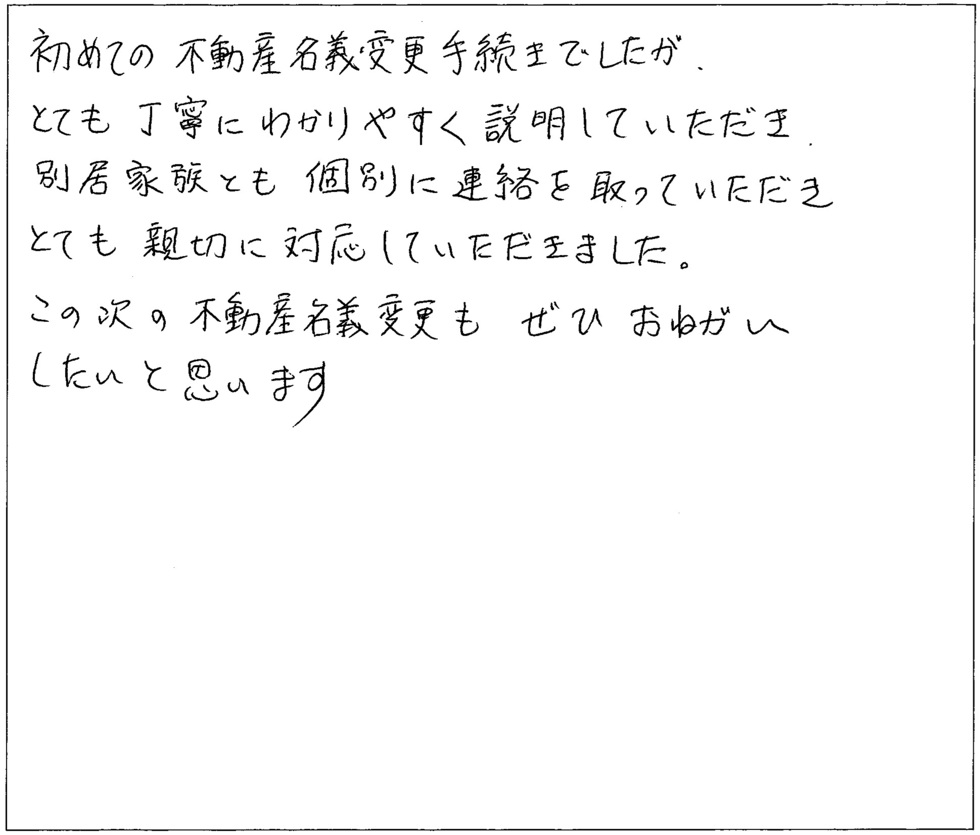 初めての不動産名義変更手続きでしたが、
とても丁寧にわかりやすく説明していただき、
別居家族とも個別に連絡を取っていただき
とても親切に対応していただきました。
この次の不動産名義変更もぜひおねがい
したいと思います